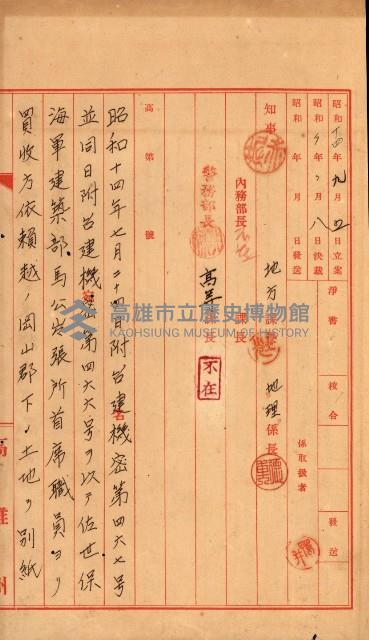 昭和十四年九月四日立案
昭和〃年〃月八日決裁
昭和 年 月 日發送
淨書
校合
發送
係取扱者
知事
內務部長
不在
地方課長
地理係長
警務部長
高等課長
不在
高第 號
昭和十四年七月二十四日附台建機密第四六七號
並同日附台建機密第四六六號ヲ以テ佐世保
海軍建築部馬公出張所首席職員ヨリ
買收方依賴越ノ岡山郡下ノ土地ヲ別紙
高雄市立歷史博物館
KAOHSIUNG MUSEUM OF HISTORY
高雄州